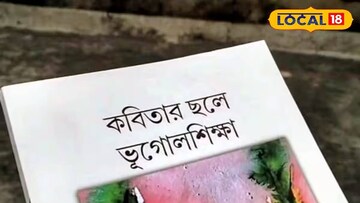 LOCAL 18
কবিতার ছলে
ভূগোলশিক্ষা